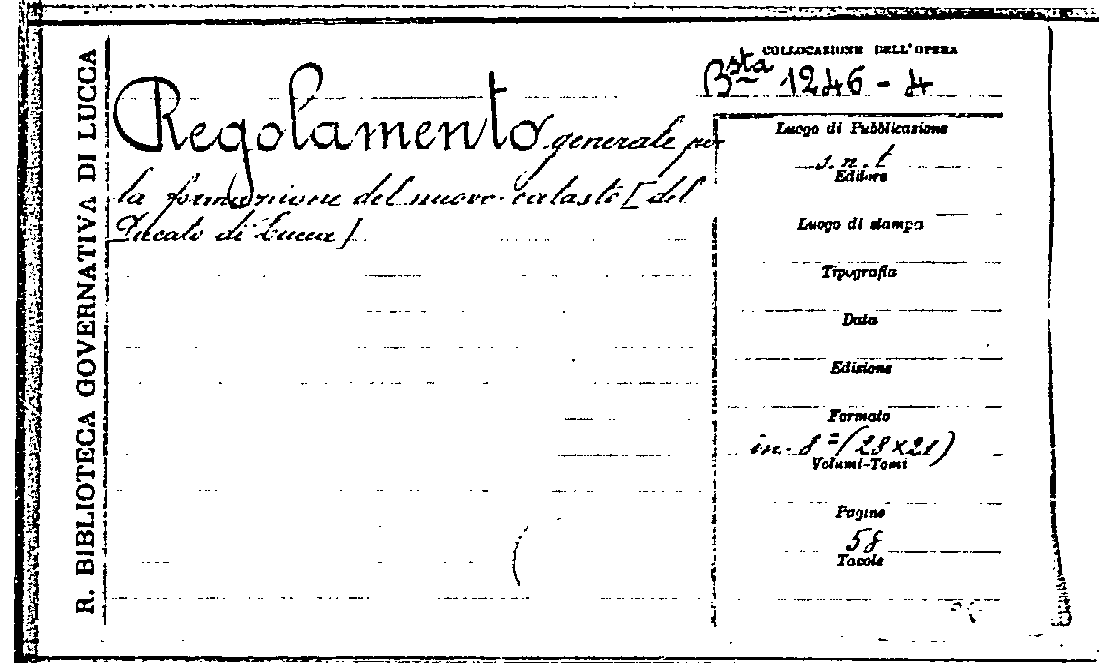 R. BIBLIOTECA GOVERNATIVA DI LUCCA
Regolamento generale per
la formazione del nuovo catasto [del
Ducato di Lucca]
COLLOCAZIONE DELL'OPERA
Bsta 1246-4
Luogo di Pubblicazione
s.n.t
Editore
Luogo di stampa
Tipografia
Data
Edizione
Formato
in-8=(28x21)
Volumi-Tomi
Pagine
58
Tavole